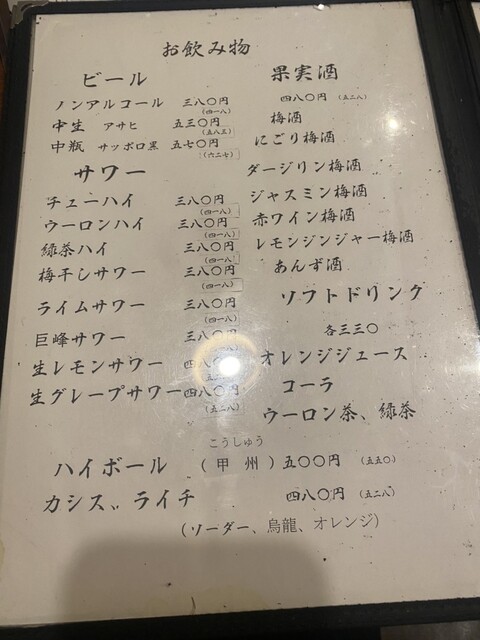 お飲み物
ビール
ノンアルコール 三八〇円
(四一八)
中生 アサヒ 五三〇円
(五八三)
中瓶 サッポロ黒 五七〇円
(六二七)
サワー
チューハイ 三八〇円
(四一八)
ウーロンハイ 三八〇円
(四一八)
緑茶ハイ 三八〇円
(四一八)
梅干しサワー 三八〇円
(四一八)
ライムサワー 三八〇円
(四一八)
巨峰サワー 三八〇円
生レモンサワー 四八〇
生グレープサワー 四八〇円
(五二八)
果実酒
四八〇円 (五二八)
梅酒
にごり梅酒
ダージリン梅酒
ジャスミン梅酒
赤ワイン梅酒
レモンジンジャー梅酒
あんず酒
ソフトドリンク
各三三〇
オレンジジュース
コーラ
ウーロン茶、緑茶
こうしゅう
ハイボール (甲州) 五〇〇円 (五五〇)
カシス、、ライチ 四八〇円 (五二八)
(ソーダー、烏龍、オレンジ)